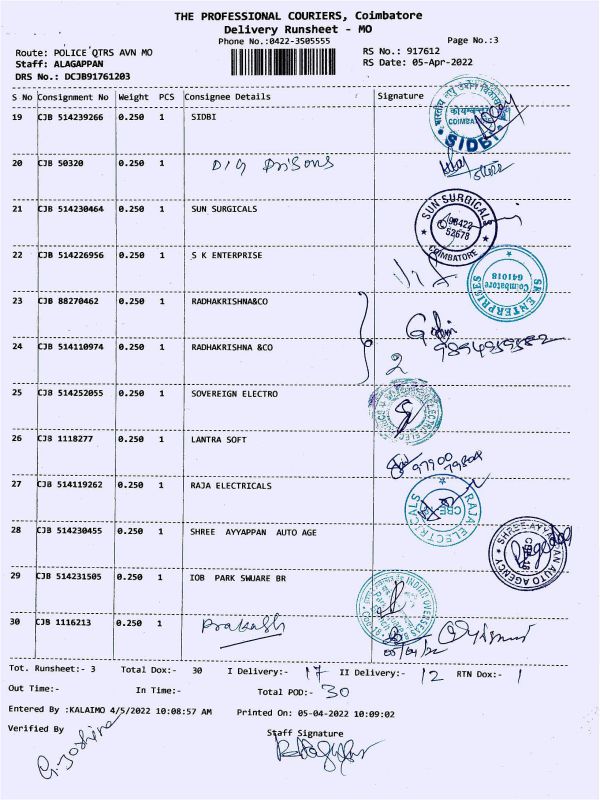 THE PROFESSIONAL COURIERS, Coimbatore
Delivery Runsheet - MO
Phone No.:0422-3505555
Page No.:3
Route: POLICE QTRS AVN MO
RS No.: 917612
Staff: ALAGAPPAN
RS Date: 05-Apr-2022
DRS No.: DCJB91761203
S No Consignment No Weight PCS Consignee Details Signature
19 CJB 514239266 0.250 1 SIDBI
COIMBATORE
SIDBI
20 CJB 50320 0.250 1 DIG Prisons
21 CJB 514230464 0.250 1 SUN SURGICALS
SUN SURGICALS
98422
52678
COIMBATORE
22 CJB 514226956 0.250 1 S K ENTERPRISE
SK ENTERPRISES
Coimbatore
641018
23 CJB 88270462 0.250 1 RADHAKRISHNA&CO
24 CJB 514110974 0.250 1 RADHAKRISHNA &CO
2
25 CJB 514252055 0.250 1 SOVEREIGN ELECTRO
26 CJB 1118277 0.250 1 LANTRA SOFT
97900
27 CJB 514119262 0.250 1 RAJA ELECTRICALS
RAJA ELECTRICALS
28 CJB 514230455 0.250 1 SHREE AYYAPPAN AUTO AGE
29 CJB 514231505 0.250 1 IOB PARK SWUARE BR
INDIAN OVERSEAS
30 CJB 1116213 0.250 1 Prakash
05/04/22
Tot. Runsheet:- 3 Total Dox:- 30 I Delivery:- 17 II Delivery:- 12 RTN Dox:- 1
Out Time:- In Time:- Total POD:- 30
Entered By :KALAIMO 4/5/2022 10:08:57 AM Printed On: 05-04-2022 10:09:02
Verified By Staff Signature
G. Joshina